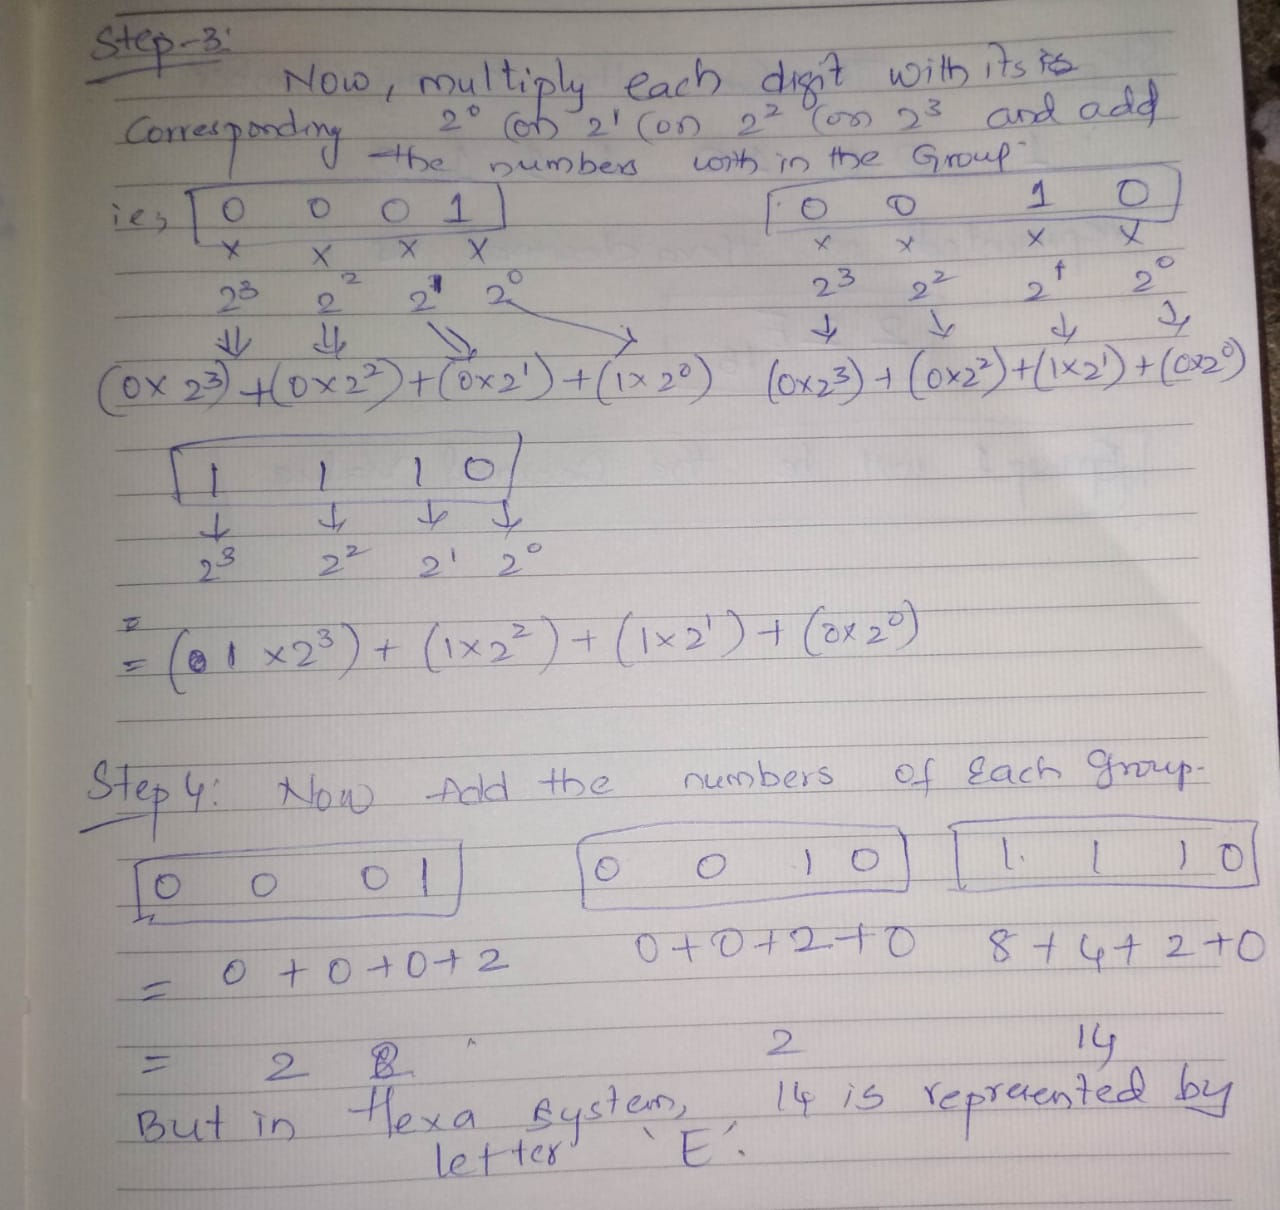 Step-3:
Now, multiply each digit with its is
Corresponding 2⁰ (or) 2¹ (or) 2² (or) 2³ and add
the numbers with in the Group
ie, 0 0 0 1 0 0 1 0
x x x x x x x x
2³ 2² 2¹ 2⁰ 2³ 2² 2¹ 2⁰
⇓ ⇓ ⇘ ↘ ↓ ↓ ↓ ↓
(0x 2³)+(0x2²)+(0x2¹)+(1x2⁰) (0x2³)+(0x2²)+(1x2¹)+(0x2⁰)
1 1 1 0
↓ ↓ ↓ ↓
2³ 2² 2¹ 2⁰
=
= (1 x2³)+(1x2²)+(1x2¹)+(0x2⁰)
Step 4: Now Add the numbers of Each group.
0 0 0 1 0 0 1 0 1. 1 1 0
= 0 + 0 + 0 + 2 0+0+2+0 8+4+2+0
= 2 2 14
But in Hexa System, 14 is represented by
letter 'E'.